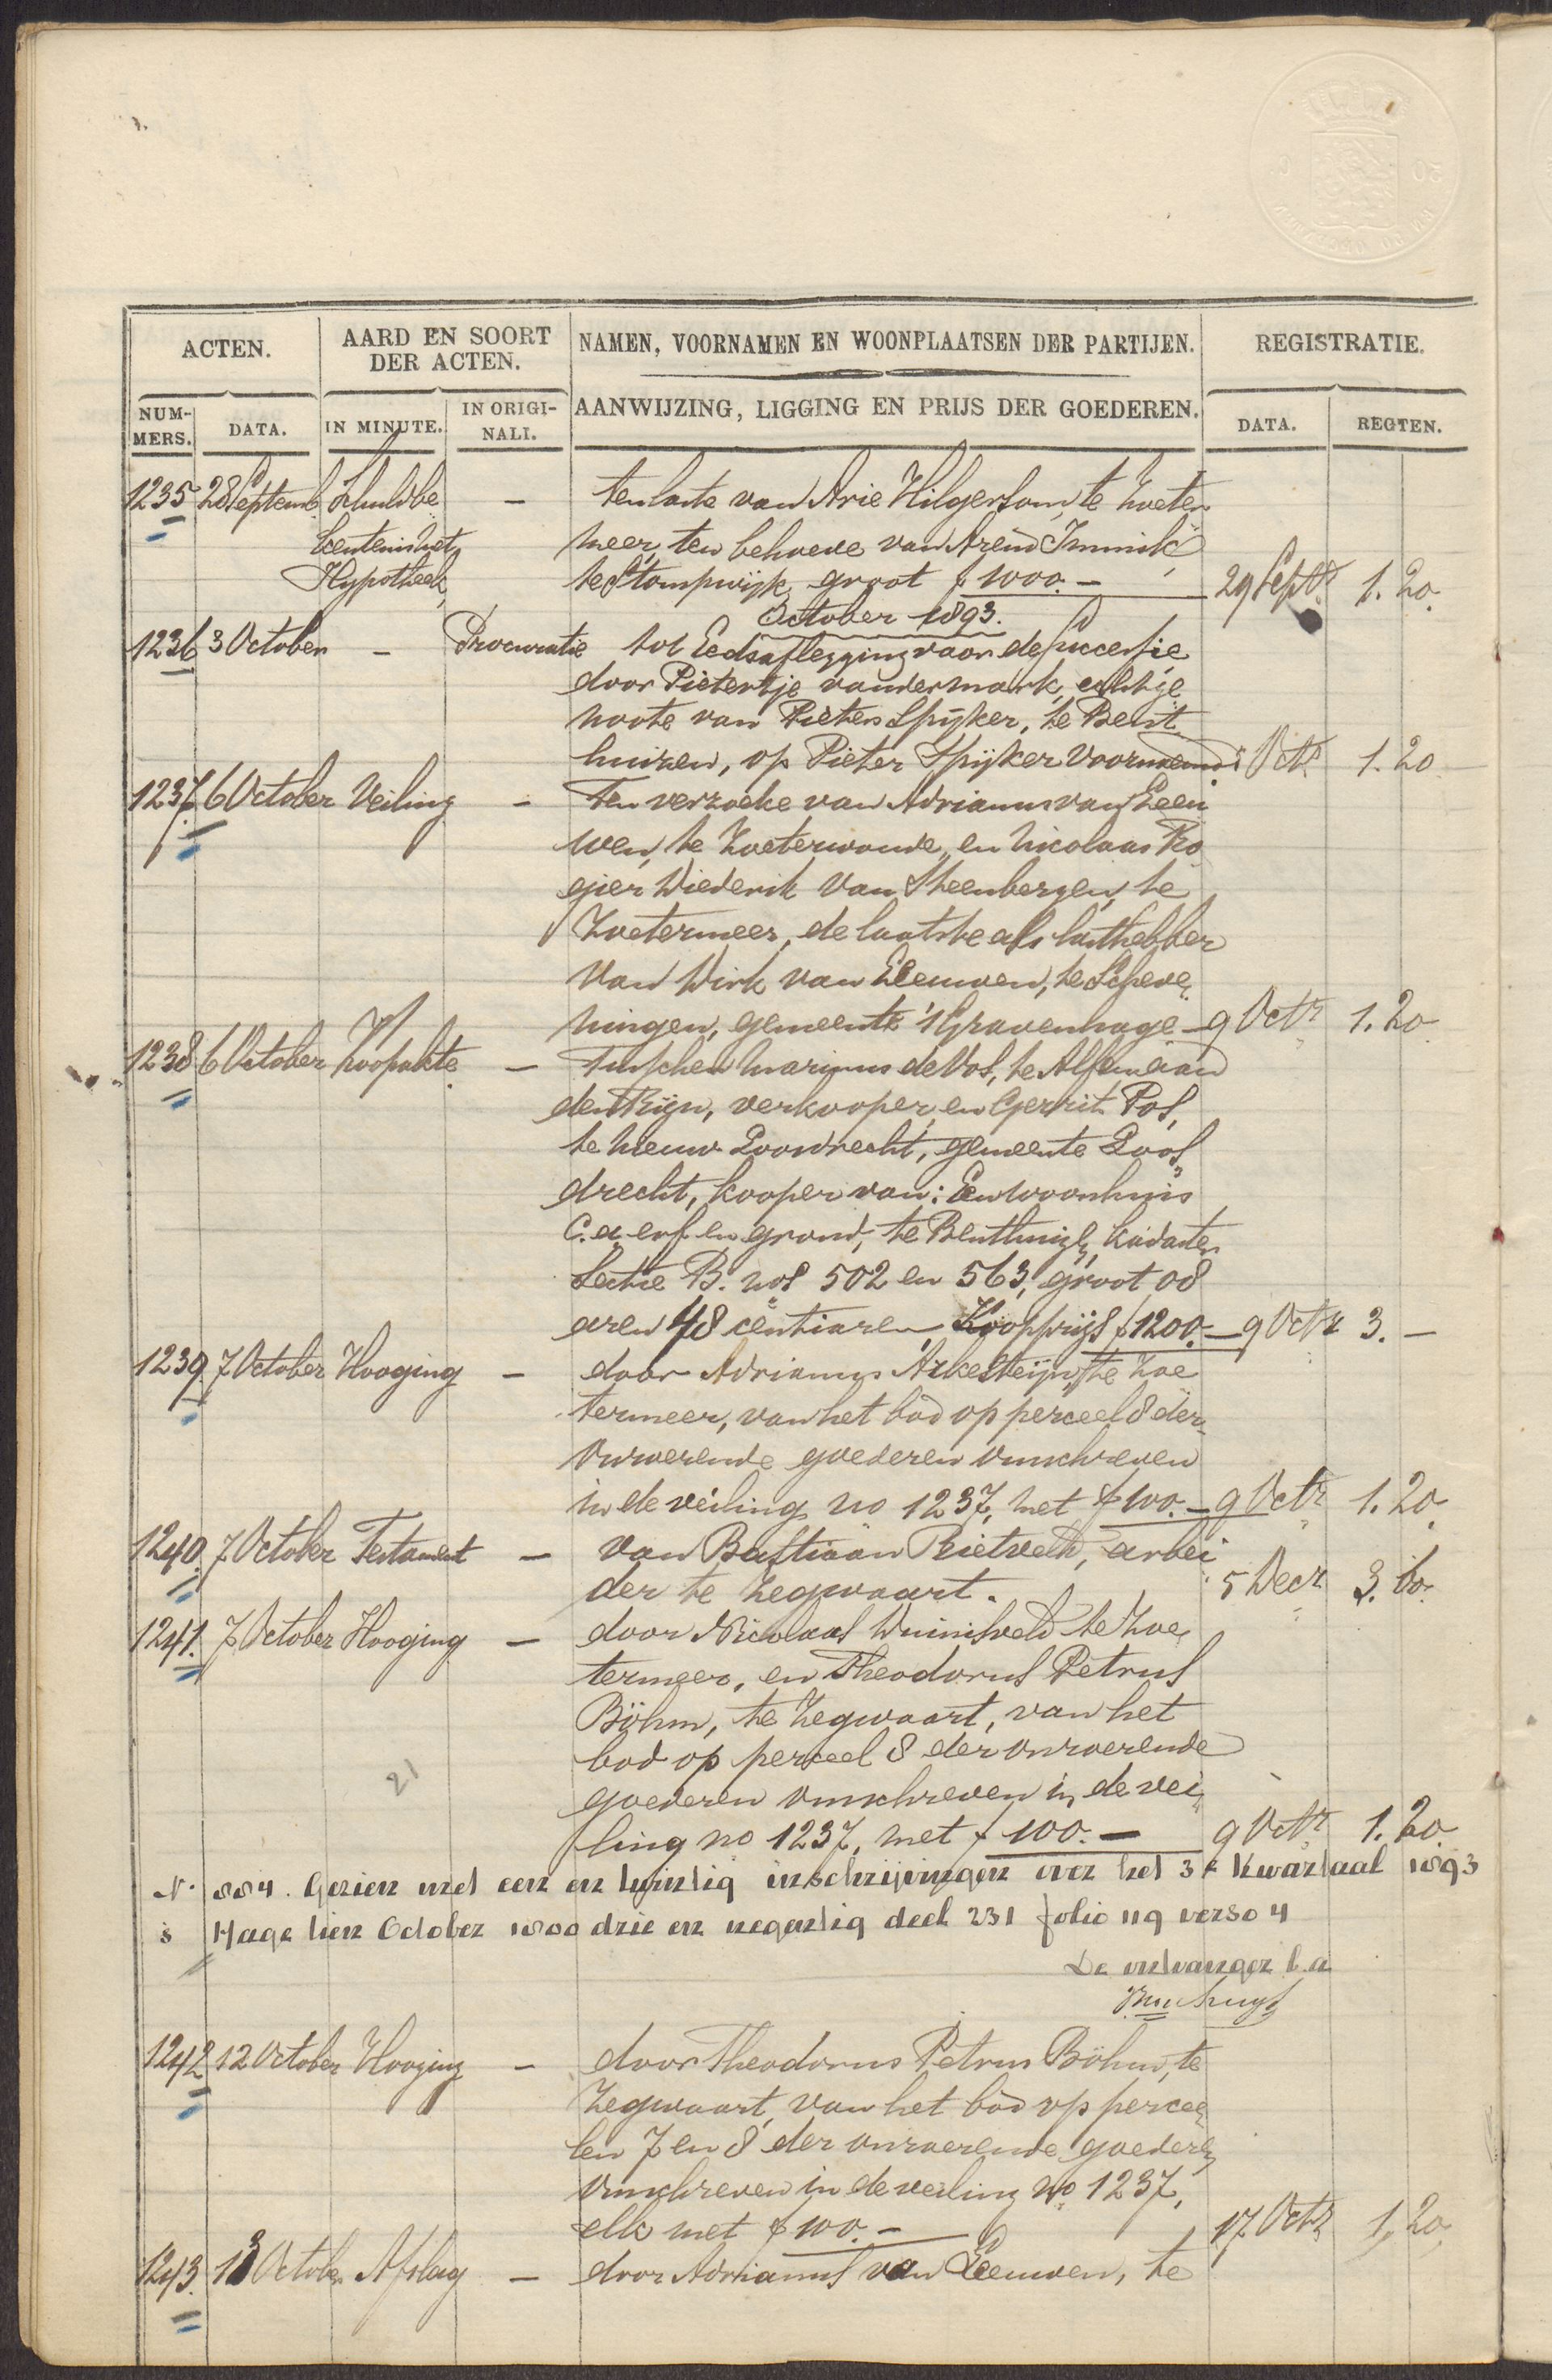 ACTEN.
AARD EN SOORT
DER ACTEN.
NAMEN, VOORNAMEN EN WOONPLAATSEN DER PARTIJEN.
REGISTRATIE.
NUM-
MERS.
DATA.
IN MINUTE.
IN ORIGI-
NALI.
AANWIJZING, LIGGING EN PRIJS DER GOEDEREN.
DATA.
REGTEN.
1235 28 Septemb. Schuldbe — ten laste van Arie Hilgersom, te Zoeter
kentenis met meer, ten behoeve van Arend Immink
Hypotheek, te Stompwijk, groot f 1000.— 29 Septr. 1.20.
October 1893.
1236 3 October — Procuratie tot Eedsaflegging voor de successie
door Pietertje van der mark, echtge
noote van Pieter Spijker, te Bent
huizen, op Pieter Spijker voornoemd Octr. 1.20
1237. 6 October Veiling — Ten verzoeke van Adrianus van Leeu
wen, te Zoeterwoude, en Nicolaas Ro
gier Diederik van Steenbergen, te
Zoetermeer, de laatste als lasthebber
van Dirk van Leeuwen, te Scheve
ningen, gemeente 's Gravenhage — 9 Octr. 1.20
1238 6 October Koopakte — Tusschen Marinus de Vos, te Alfen aan
den Rijn, verkooper, en Gerrit Pos,
te Nieuw Loosdrecht, gemeente Loos
drecht, kooper van: Een woonhuis
c.a. erf en grond, te Benthuizen, kadaster
Sectie B. nos 502 en 563, groot 08
aren 48 centiaren, Koopprijs f 1200.— 9 Octr 3.—
1239. 7 October Hooging — door Adrianus Arkesteijn, te Zoe
termeer, van het bod op perceel 8 der
onroerende goederen omschreven
in de veiling no 1237, met f 100.— 9 Octr. 1.20
1240. 7 October Testament — van Bastiaan Rietveld, arbei
der te Zegwaart. 5 Decr 3.60.
1241. 7 October Hooging — door Nicolaas Duinisveld te Zoe
termeer, en Theodorus Petrus
Böhm, te Zegwaart, van het
bod op perceel 8 der onroerende
21
goederen omschreven in de vei
ling no 1237, met f 100.— 9 Octr. 1.20.
No. 884. Gezien met een en twintig inschrijvingen over het 3e Kwartaal 1893
's Hage tien October 1800 drie en negentig deel 231 folio 119 verso 4
De ontvanger b.a
1242 12 October Hooging — door Theodorus Petrus Böhm, te
Zegwaart, van het bod op percee
len 7 en 8 der onroerende goederen
omschreven in de veiling no. 1237,
elk met f 100.— 17 Octr. 1,20.
1243. 13 October Afslag — door Adrianus van Leeuwen, te